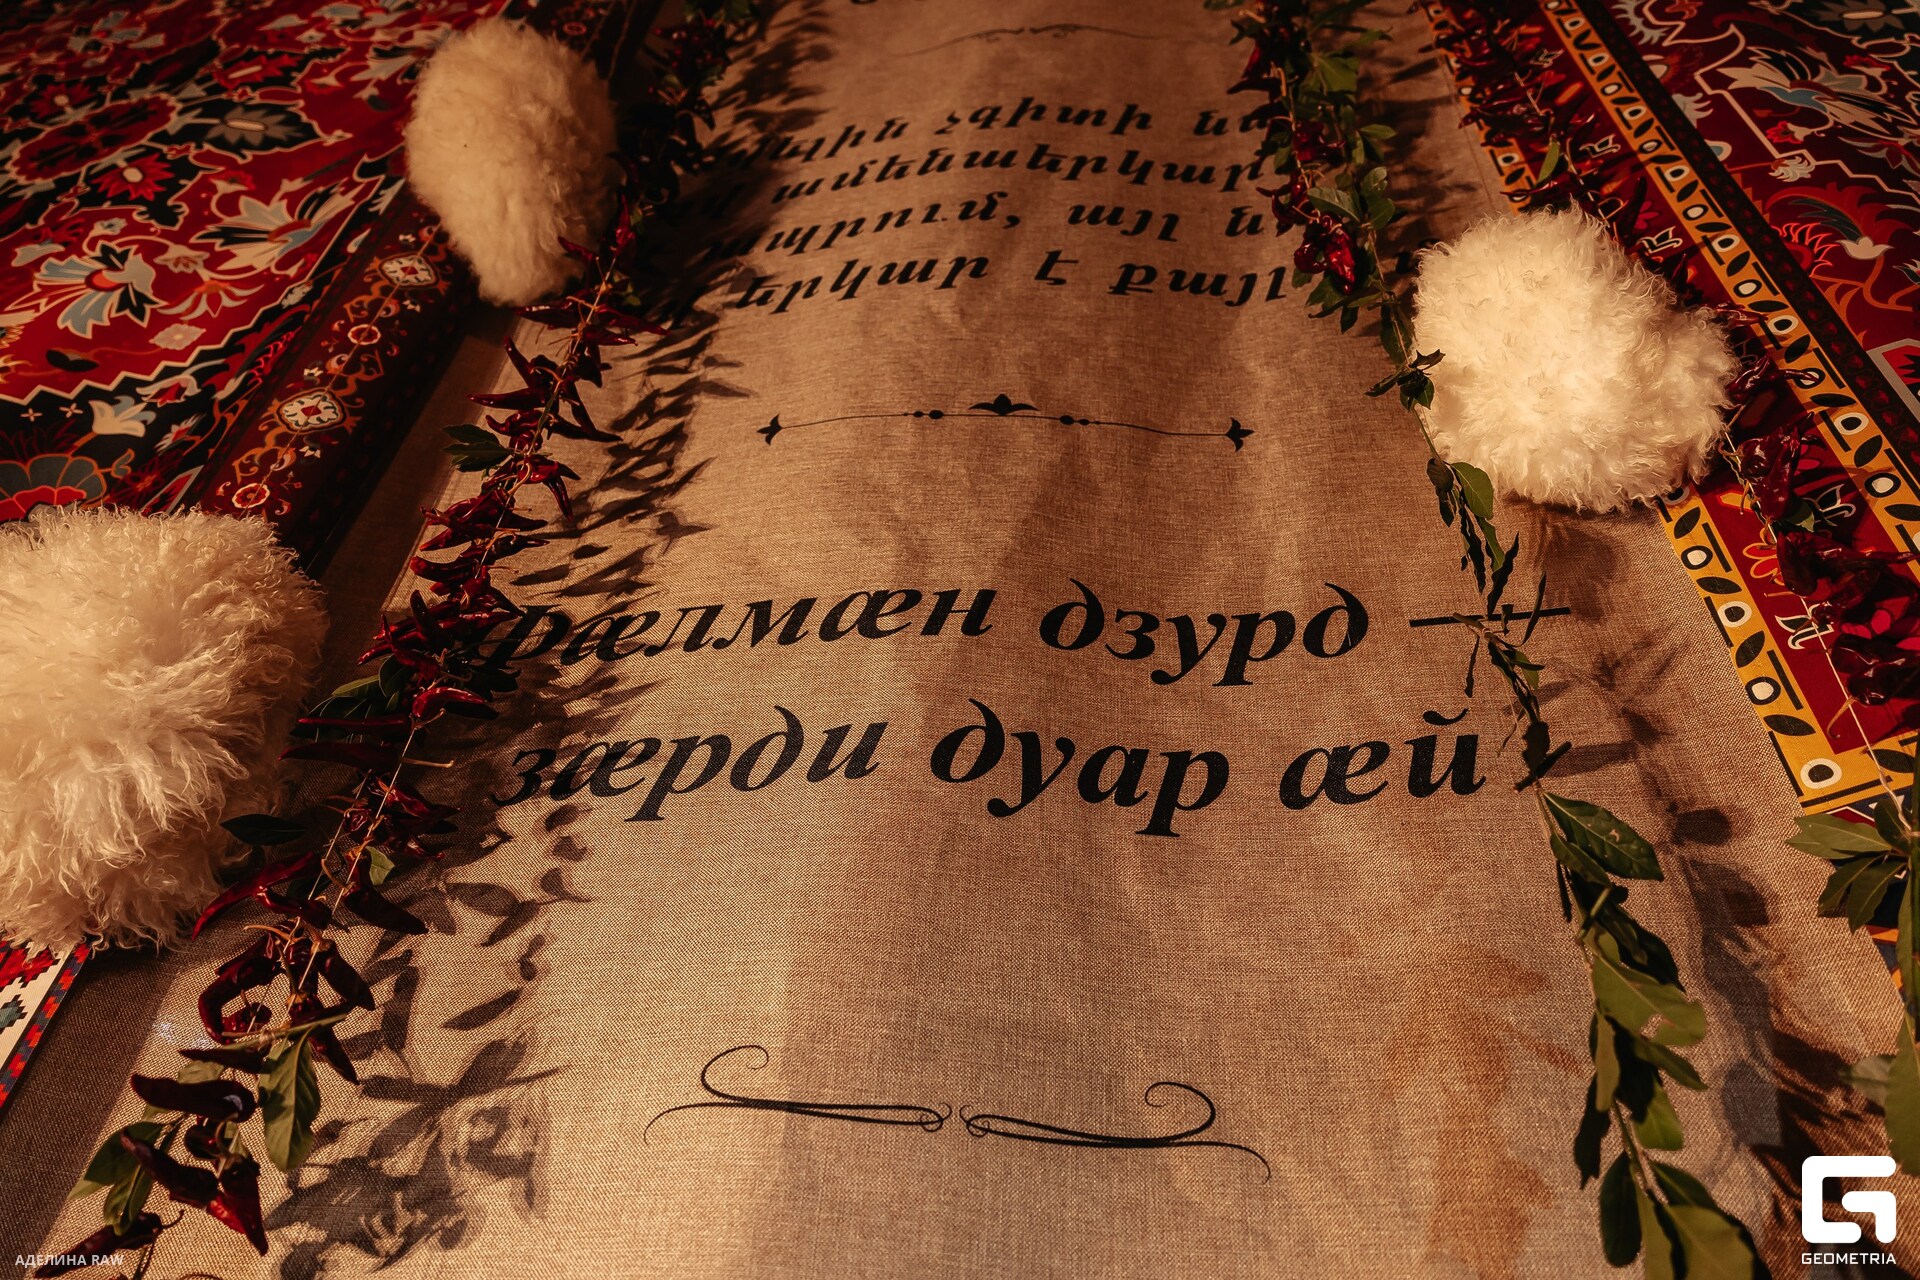 չգիտի
ամենաերկար
այլ
երկար է քայլ
Фæлмæн дзурд —
зæрди дуар æй
АДЕЛИНА RAW
GEOMETRIA